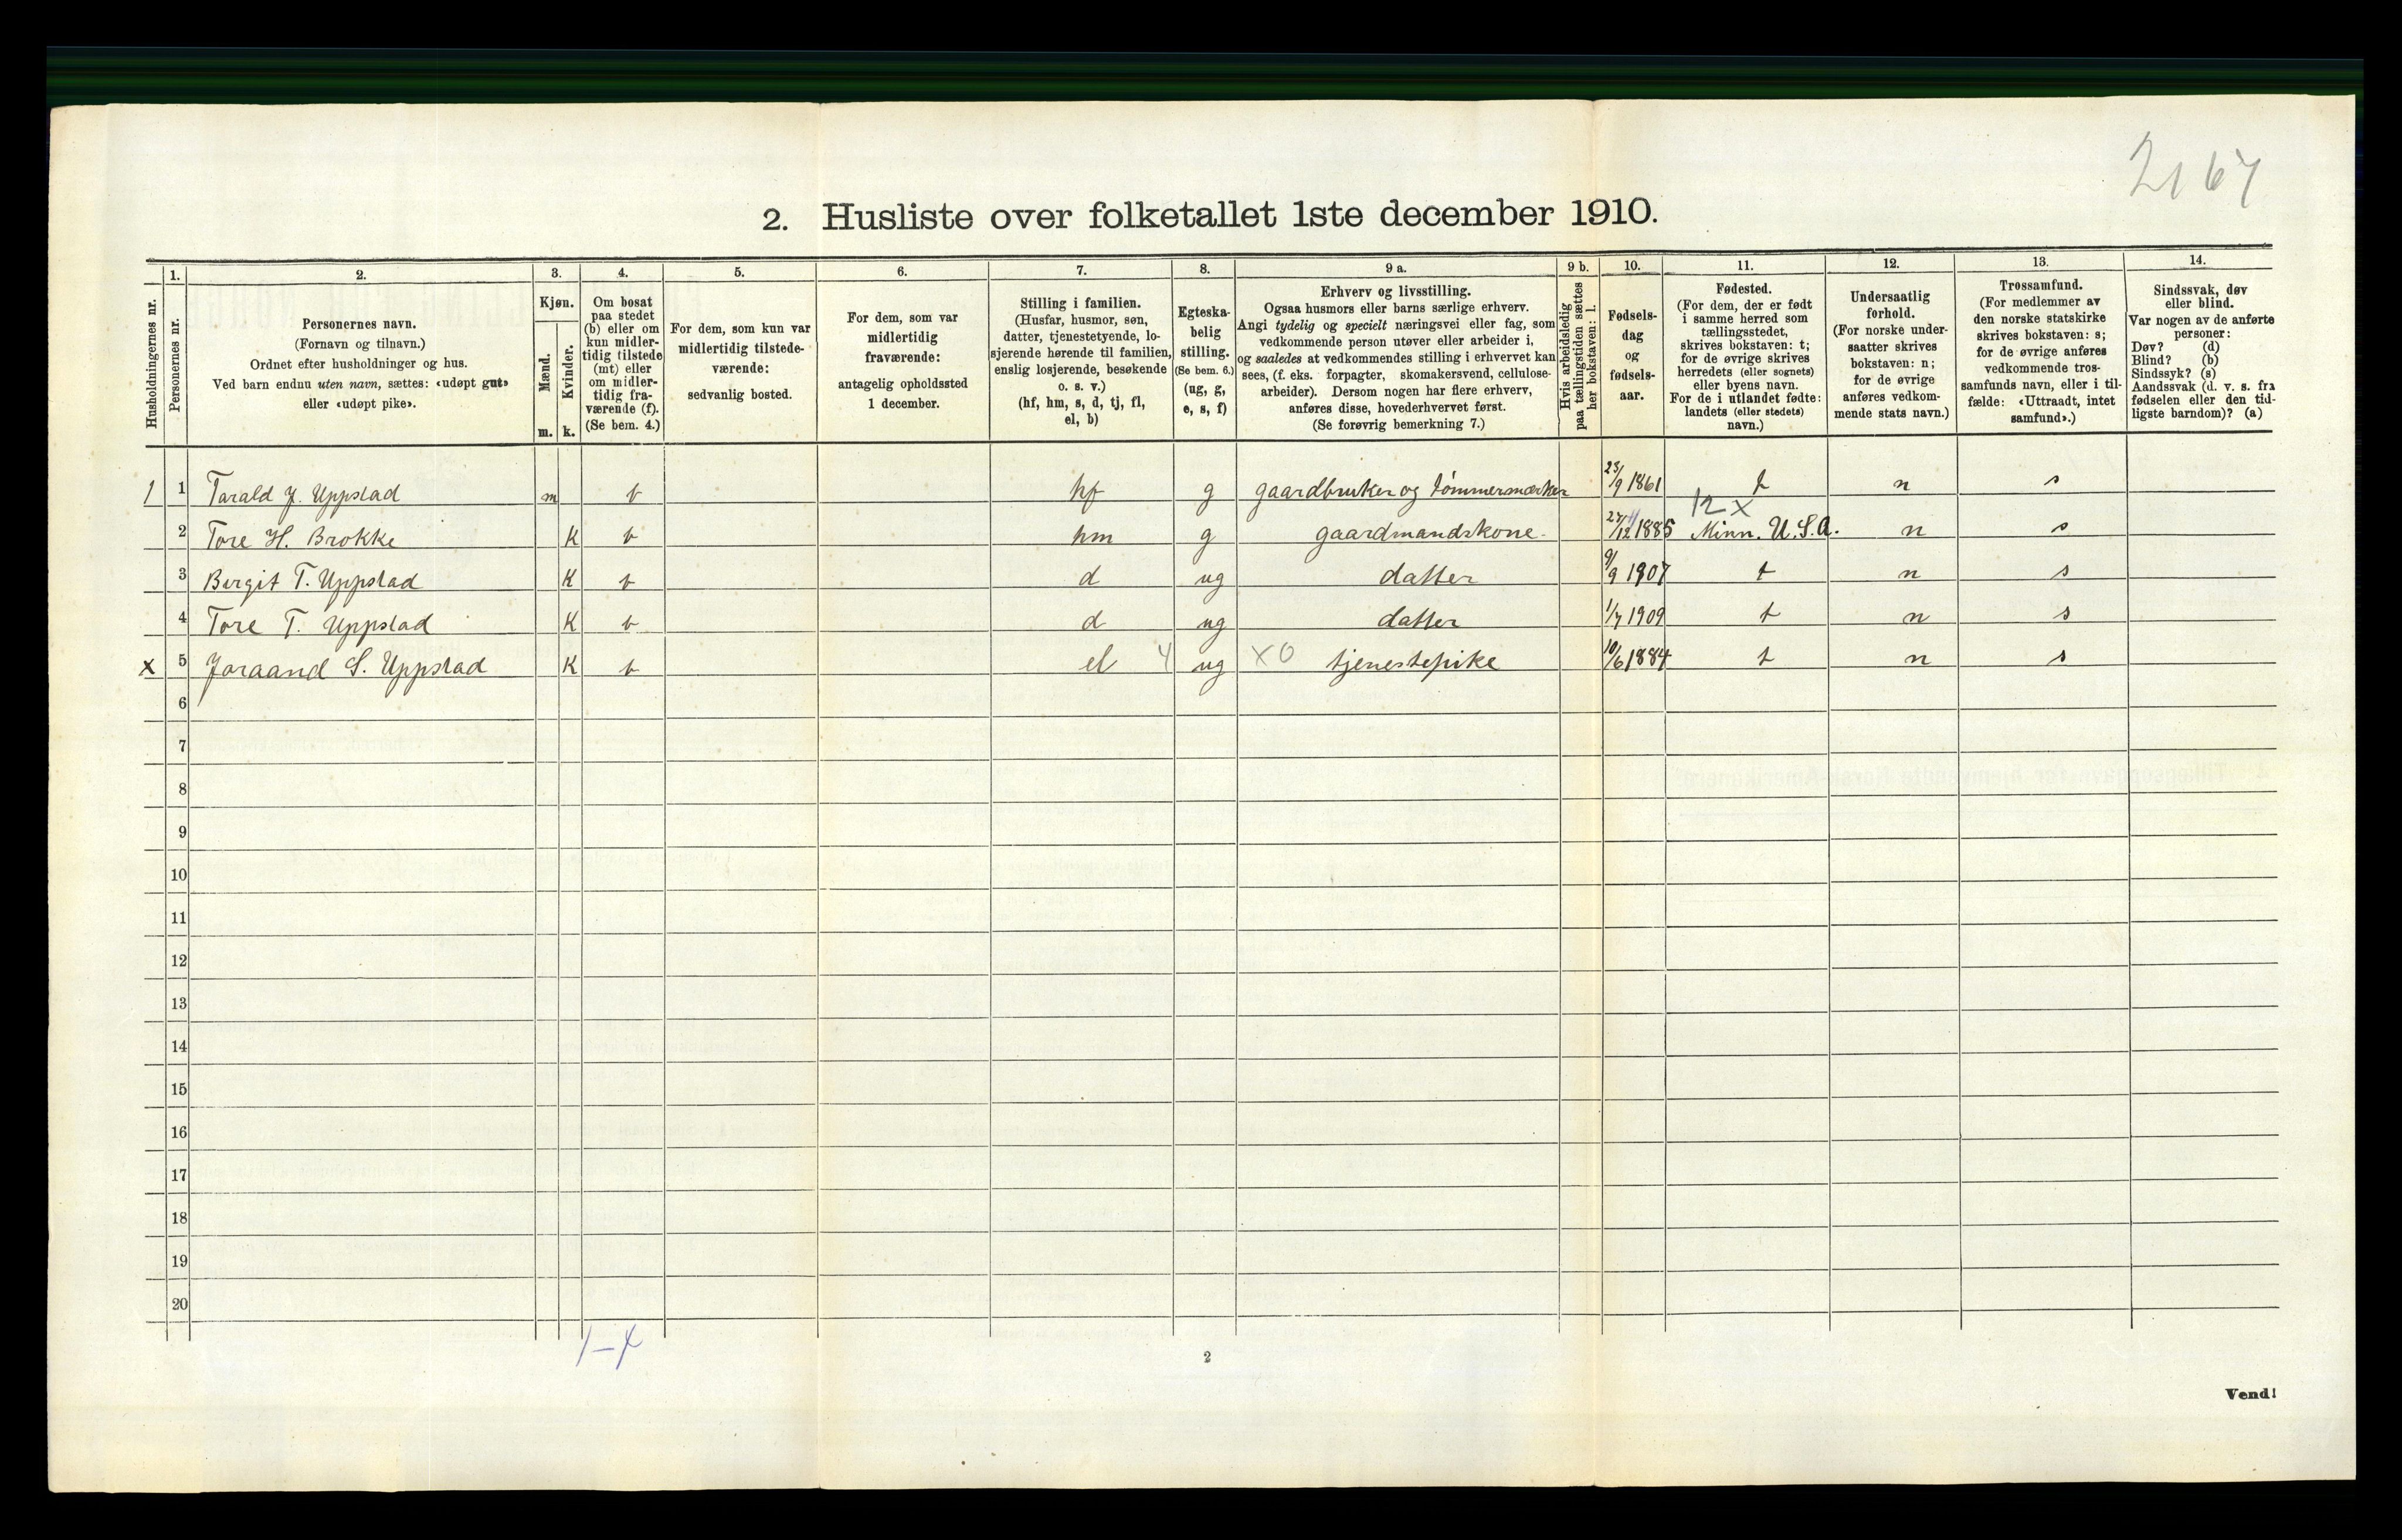 2167
2. Husliste over folketallet 1ste december 1910.
Husholdningernes nr.
1. Personernes nr.
2. Personernes navn.
(Fornavn og tilnavn.)
Ordnet efter husholdninger og hus.
Ved barn endnu uten navn, sættes: «udøpt gut»
eller «udøpt pike».
3. Kjøn.
Mænd. m.
Kvinder. k.
4. Om bosat
paa stedet
(b) eller om
kun midler-
tidig tilstede
(mt) eller
om midler-
tidig fra-
værende (f).
(Se bem. 4.)
5. For dem, som kun var
midlertidig tilstede-
værende:
sedvanlig bosted.
6. For dem, som var
midlertidig
fraværende:
antagelig opholdssted
1 december.
7. Stilling i familien.
(Husfar, husmor, søn,
datter, tjenestetyende, lo-
sjerende hørende til familien,
enslig losjerende, besøkende
o. s. v.)
(hf, hm, s, d, tj, fl,
el, b)
8. Egteska-
belig
stilling.
(Se bem. 6.)
(ug, g,
e, s, f)
9 a. Erhverv og livsstilling.
Ogsaa husmors eller barns særlige erhverv.
Angi tydelig og specielt næringsvei eller fag, som
vedkommende person utøver eller arbeider i,
og saaledes at vedkommendes stilling i erhvervet kan
sees, (f. eks. forpagter, skomakersvend, cellulose-
arbeider). Dersom nogen har flere erhverv,
anføres disse, hovederhvervet først.
(Se forøvrig bemerkning 7.)
9 b. Hvis arbeidsledig
paa tællingstiden sættes
her bokstaven: l.
10. Fødsels-
dag
og
fødsels-
aar.
11. Fødested.
(For dem, der er født
i samme herred som
tællingsstedet,
skrives bokstaven: t;
for de øvrige skrives
herredets (eller sognets)
eller byens navn.
For de i utlandet fødte:
landets (eller stedets)
navn.)
12. Undersaatlig
forhold.
(For norske under-
saatter skrives
bokstaven: n;
for de øvrige
anføres vedkom-
mende stats navn.)
13. Trossamfund.
(For medlemmer av
den norske statskirke
skrives bokstaven: s;
for de øvrige anføres
vedkommende tros-
samfunds navn, eller i til-
fælde: «Uttraadt, intet
samfund».)
14. Sindssvak, døv
eller blind.
Var nogen av de anførte
personer:
Døv? (d)
Blind? (b)
Sindssyk? (s)
Aandssvak (d. v. s. fra
fødselen eller den tid-
ligste barndom)? (a)
1 1 Tarald J. Uppstad m b hf g gaardbruker og tømmermærker 23/9 1861 t n s
12 X
2 Tore H. Brokke K b hm g gaardmandskone 1885 Minn. U.S.A. n s
3 Birgit T. Uppstad K b d ug datter 9/9 1907 t n s
4 Tore T. Uppstad K b d ug datter 1/7 1909 t n s
x 5 Joraand S. Uppstad K b el 4 ug X0 tjenestepike 10/6 1884 t n s
6
7
8
9
10
11
12
13
14
15
16
17
18
19
20
1-4
2
Vend!